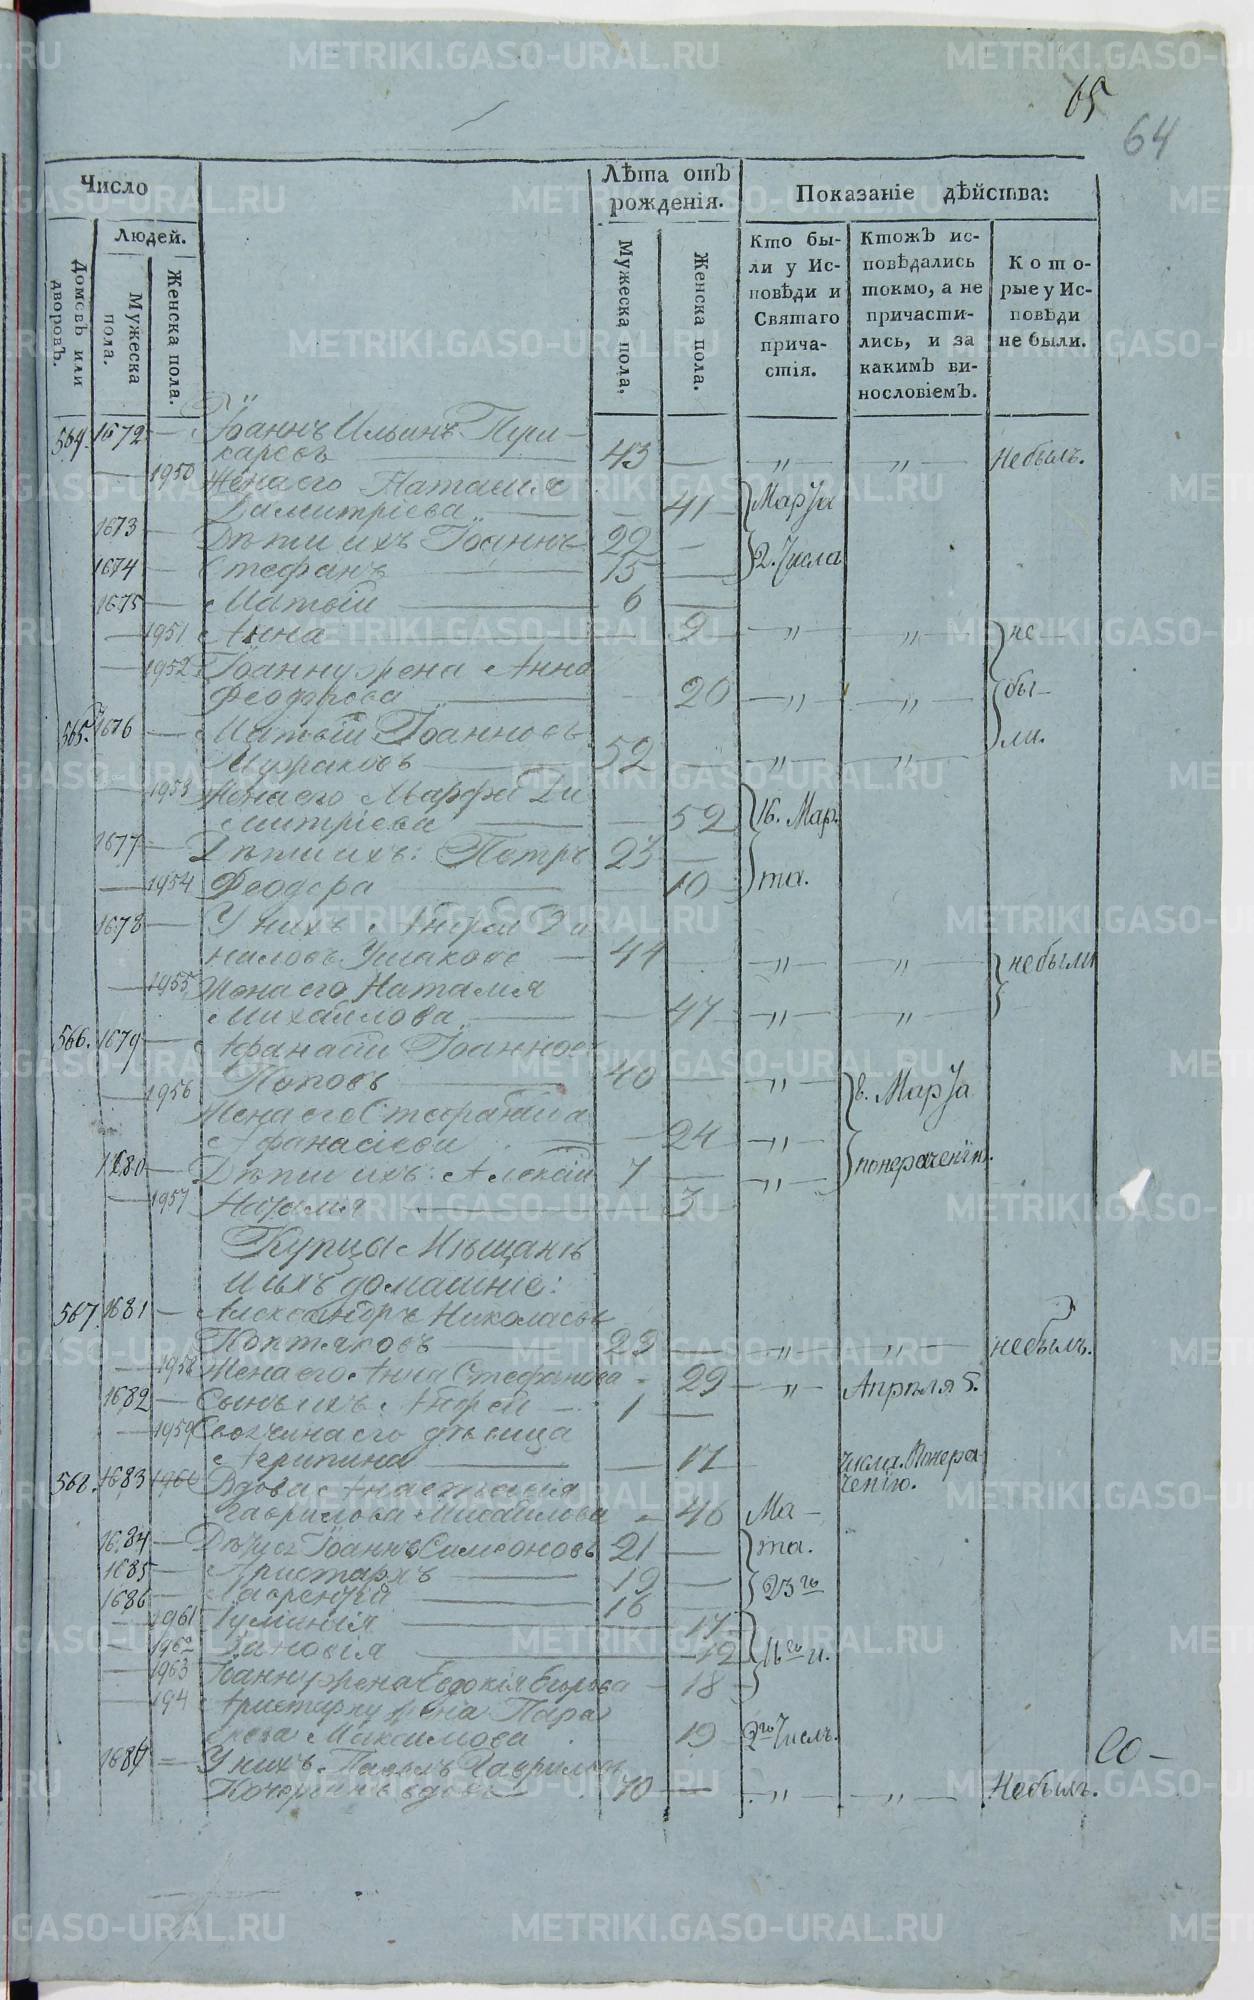 65
64
Число
Лѣта отъ
рожденія.
Показаніе дѣйства:
Людей.
Домовъ или
дворовъ.
Мужеска
пола.
Женска пола.
Мужеска пола,
Женска пола.
Кто бы-
ли у Ис-
повѣди и
Святаго
прича-
стія.
Ктожъ ис-
повѣдались
токмо, а не
причасти-
лись, и за
какимъ ви-
нословіемъ.
Кото-
рые у Ис-
повѣди
не были.
564. 1672 — Іоаннъ Ильинъ
43 — „ — „ — Небылъ.
— 1950 Жена его Наталія
Димитріева — — 41 — Марта
1673 — Дѣти ихъ Іоаннъ 22 — 2. Числа
1674 — Стефанъ — 15 —
1675 — Матѳій — 6 —
— 1951 Анна — — 9 — „ — „ — не
— 1952 Іоанну жена Анна
Феодорова — — 20 — „ — „ — бы-
ли.
565. 1676 — Матѳій Іоанновъ
52 — „ — „
— 1953 Жена его Марфа Ди
митріева — — 52 16. Мар.
1677 — Дѣти ихъ: Петръ 23 —
— 1954 Феодора — — 10 — та.
1678 — У нихъ Андрей Да
ниловъ Ушаковъ — 44 — „ — „ — небыли
— 1955 Жена его Наталія
Михайлова — — 47 — „ — „
566. 1679 — Афанасій Іоанновъ
Поповъ — 40 — „ — 8. Марта
— 1956 Жена его Стефанида
Афанасіева — — 24 — „ —
1680 — Дѣти ихъ: Алексій 7 — „ — понераченію.
— 1957 Наталія — — 3 —
Купцы Мѣщанъ
и ихъ домашніе:
567. 1681 — Александръ Николаевъ
Коптяковъ — 23 — „ — „ — небылъ.
— 1958 Жена его Анна Стефанова — 29 — „ — Апрѣля 5.
1682 — Сынъ ихъ Андрей — 1 —
— 1959 его дѣвица
Агрипина — — 17 числа. Понера-
ченію.
568. 1683 1960 Вдова Анастасія
Гаврилова Михайлова — 46 Ма —
1684 — Іоаннъ Симеоновъ 21 — та.
1685 — Аристархъ — 19 — 23го
1686 — Лаврентій — 16 —
— 1961 — 17 —
— 1962 Зиновія — — 12 16го и.
— 1963 Іоанну жена Евдокія Егорова — 18 —
— 194 Аристарху жена Пара
скева Максимова — 19 2го Числъ.
1687 — У нихъ Павелъ Гавриловъ
вдовъ 70 — „ — „ — Небылъ.
METRIKI.GASO-URAL.RU